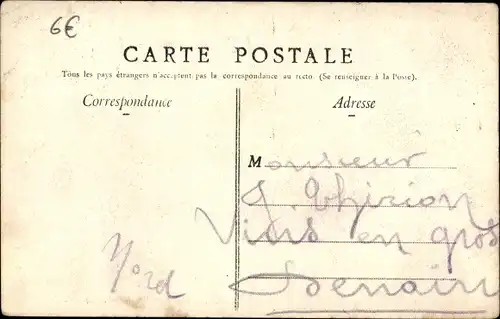 6€
CARTE POSTALE
Tous les pays étrangers n'acceptent pas la correspondance au recto (Se renseigner à la Poste).
Correspondance
Adresse
Monsieur
J. Thirion
Vins en gros
Denain
Nord